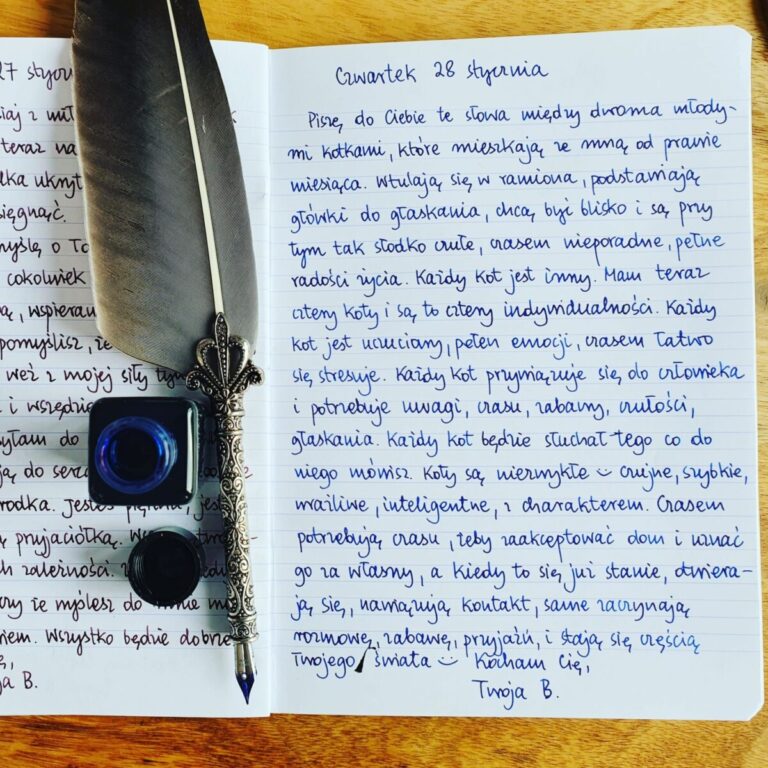 27 stycz
teraz na
sięgnąć.
cokolwiek
wspieram
pomyślisz, że
weź z mojej siły tym
i wszędzie
byłam do
ją do serca
środka. Jesteś piękna, jest
przyjaciółką.
zależności.
czy że myślesz do mnie
Wszystko będzie dobrze
B.
Czwartek 28 stycznia
Piszę do Ciebie te słowa między dwoma młody-
mi kotkami, które mieszkają ze mną od prawie
miesiąca. Wtulają się w ramiona, podstawiają
główki do głaskania, chcą być blisko i są przy
tym tak słodko czułe, czasem nieporadne, pełne
radości życia. Każdy kot jest inny. Mam teraz
cztery koty i są to cztery indywidualności. Każdy
kot jest uczuciowy, pełen emocji, czasem łatwo
się stresuje. Każdy kot przywiązuje się do człowieka
i potrzebuje uwagi, czasu, zabawy, czułości,
głaskania. Każdy kot będzie słuchał tego co do
niego mówisz. Koty są niezwykłe czujne, szybkie,
wrażliwe, inteligentne, z charakterem. Czasem
potrzebują czasu, żeby zaakceptować dom i uznać
go za własny, a kiedy to się już stanie, otwiera-
ją się, nawiązują kontakt, same zaczynają
rozmowę, zabawę, przyjaźń, i stają się częścią
Twojego świata Kocham Cię,
Twoja B.